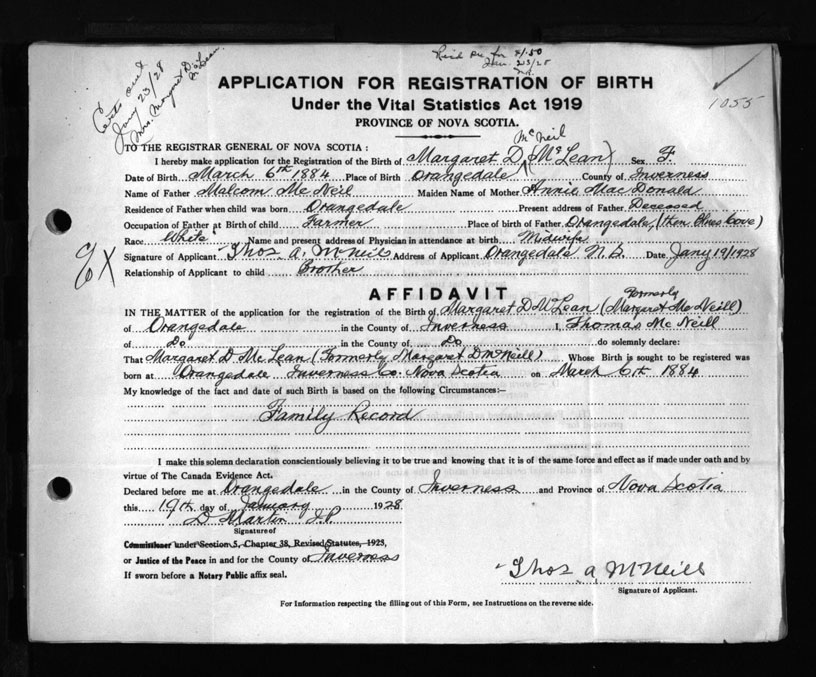 Certs sent
Jany 23/28
Mrs. Margaret D. McLean
Recd for $1.50
Jan. 23/28
1055
APPLICATION FOR REGISTRATION OF BIRTH
Under the Vital Statistics Act 1919
PROVINCE OF NOVA SCOTIA.
TO THE REGISTRAR GENERAL OF NOVA SCOTIA :
McNeil
I hereby make application for the Registration of the Birth of Margaret D. (McLean) Sex F.
Date of Birth March 6th 1884 Place of Birth Orangedale County of Inverness
Name of Father Malcom McNeil Maiden Name of Mother Annie MacDonald
Residence of Father when child was born Orangedale Present address of Father Deceased
Occupation of Father at Birth of child Farmer Place of birth of Father Orangedale, (then Blues Cove)
Race White Name and present address of Physician in attendance at birth Midwife
Signature of Applicant Thos A. McNeil Address of Applicant Orangedale N.S. Date Jany 19/1928
Relationship of Applicant to child Brother
AFFIDAVIT
formerly
IN THE MATTER of the application for the registration of the Birth of Margaret D McLean (Margaret McNeill)
of Orangedale in the County of Inverness I, Thomas McNeill
of Do in the County of Do do solemnly declare:
That Margaret D. McLean (Formerly Margaret D McNeill) Whose Birth is sought to be registered was
born at Orangedale Inverness Co. Nova Scotia on March 6th 1884
My knowledge of the fact and date of such Birth is based on the following Circumstances:—
Family Record
I make this solemn declaration conscientiously believing it to be true and knowing that it is of the same force and effect as if made under oath and by
virtue of The Canada Evidence Act.
Declared before me at Orangedale in the County of Inverness and Province of Nova Scotia
this 19th day of January 1928
D. Martin J.P.
Signature of
Commissioner under Section 5, Chapter 38, Revised Statutes, 1923,
or Justice of the Peace in and for the County of Inverness
If sworn before a Notary Public affix seal.
Thos A. McNeill
Signature of Applicant.
For Information respecting the filling out of this Form, see Instructions on the reverse side.